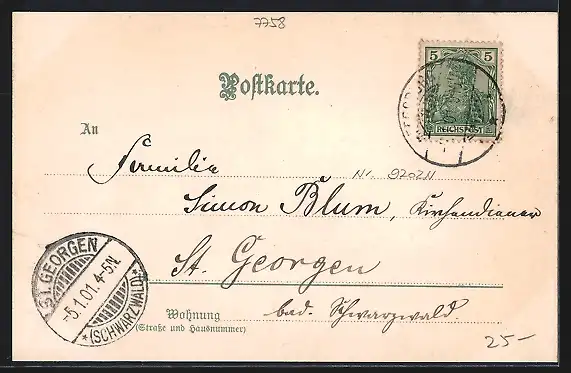 7758
Postkarte.
5 5
REICHSPOST
An
Familie
Nr. 9702N
Simon Blum, Kirchendiener
St. Georgen
bad. Schwarzwald
Wohnung
(Straße und Hausnummer)
ST. GEORGEN
-5.1.01.4-5N.
*(SCHWARZWALD)*
25-